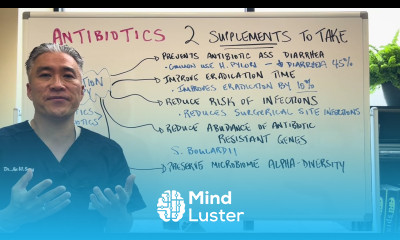 ANTIBIOTICS 2 SUPPLEMENTS TO TAKE
PREVENTS ANTIBIOTIC ASS DIARRHEA
COMMON USE H. PYLORI → ↓ DIARRHEA 45%
IMPROVE ERADICATION TIME
IMPROVES ERADICATION BY 10%
REDUCE RISK OF INFECTIONS
REDUCES SURGERICAL SITE INFECTIONS
REDUCE ABUNDANCE OF ANTIBIOTIC
RESISTANT GENES
S. BOULARDII
PRESERVE MICROBIOME ALPHA-DIVERSITY
Mind
Luster